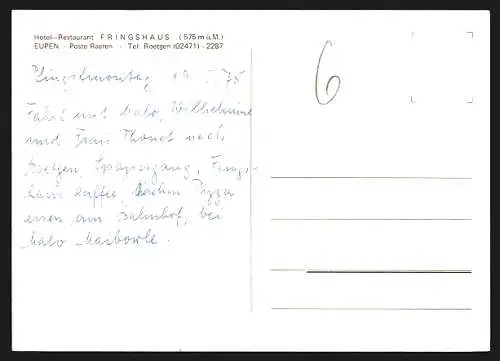 Hotel-Restaurant FRINGSHAUS (575 m ü.M.)
EUPEN - Poste Raeren - Tel: Roetgen (02471) - 2287
6
Pfingstmontag 19 5 75
Fahrt mit Malo, Wilhelmine
und Frau Thonet nach
Roetgen, Spaziergang, Frings-
haus Kaffee, Aachen Pizza
essen am Bahnhof, bei
Malo Maibowle.